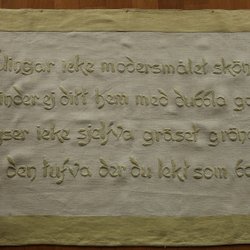 lingar icke modersmålet skön
inder ej ditt hem med dubbla g
ser icke sjelfva gräset grön
den tufva der du lekt som ba